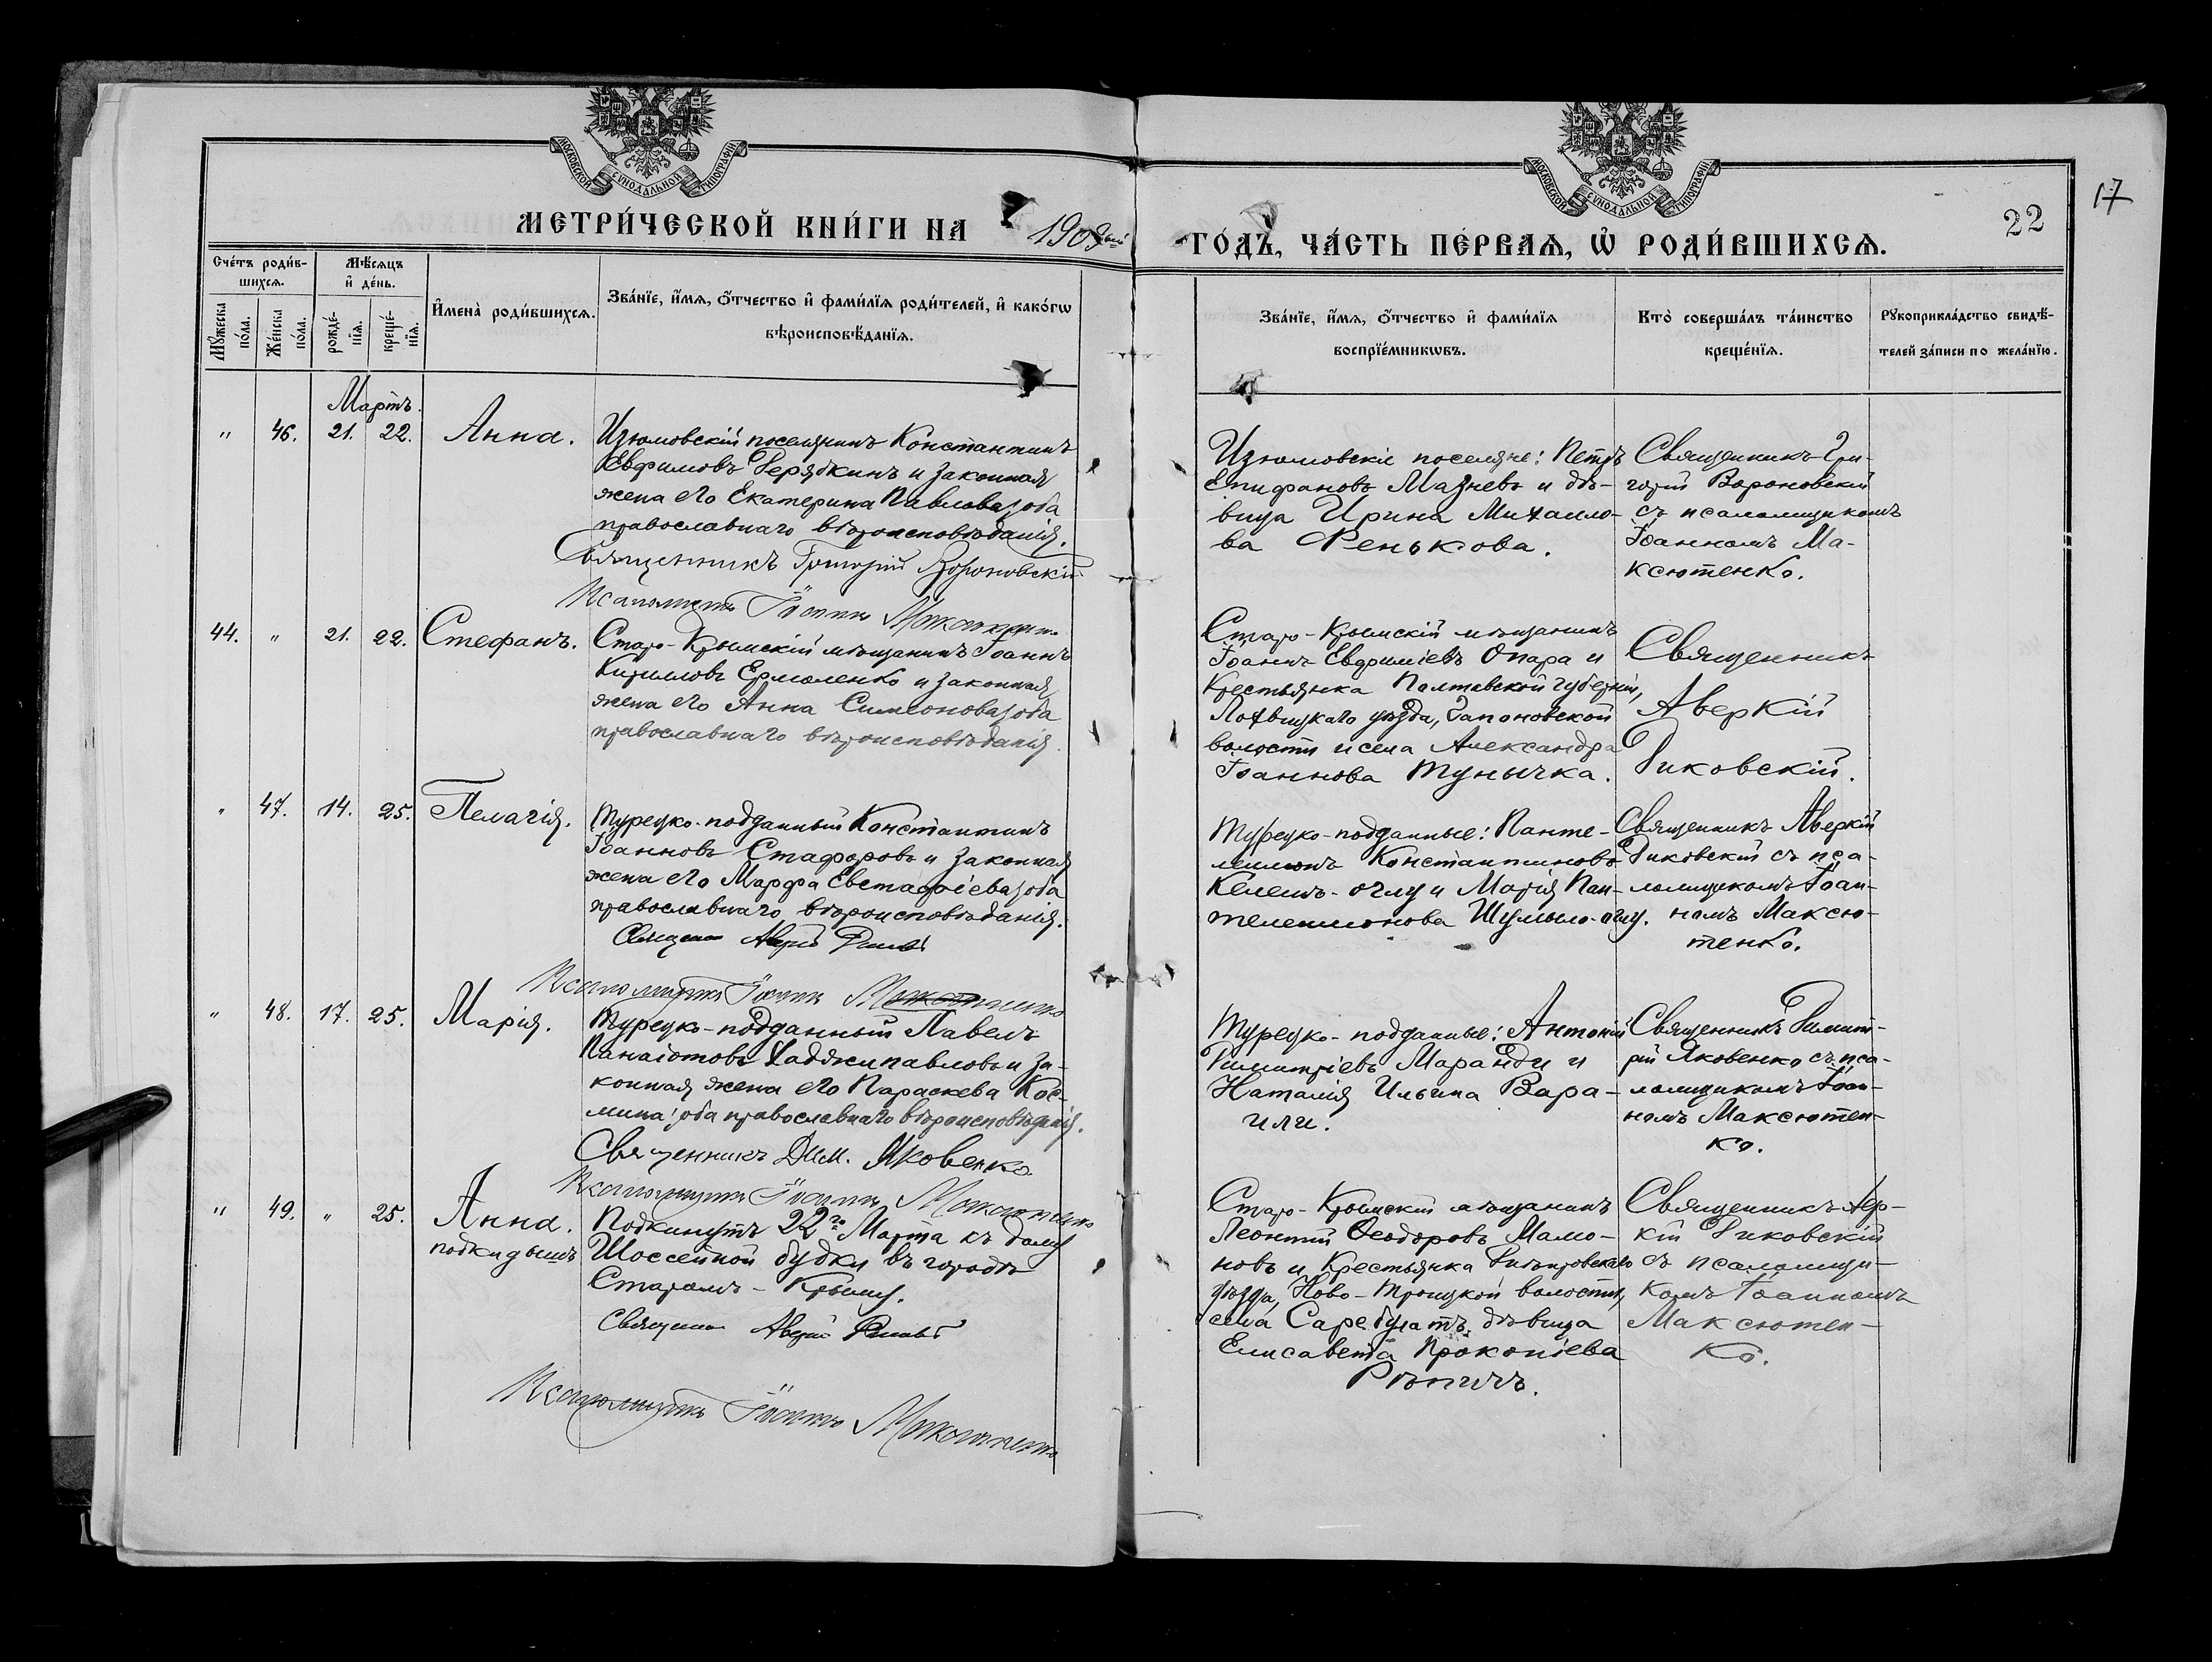 МОСКОВСКОЙ СУНОДАЛЬНОЙ ТИПОГРАФІИ
МОСКОВСКОЙ СУНОДАЛЬНОЙ ТИПОГРАФІИ
17
22
МЕТРИ́ЧЕСКОЙ КНИ́ГИ НА 1909
ГО́ДЪ, ЧА́СТЬ ПЕ́РВАЯ, Ѡ РОДИ́ВШИХСЯ.
Сче́тъ роди́в-
шихся.
Му́жеска
по́ла.
Же́нска
по́ла.
Мѣ́сяцъ
и҆ де́нь.
рожде́-
нїя.
креще́-
нїя.
И҆мена̀ роди́вшихся.
Зва́нїе, и҆́мя, о҆́тчество и҆ фами́лїя роди́телей, и҆ како́гѡ
вѣроисповѣ́данїя.
Зва́нїе, и҆́мя, о҆́тчество и҆ фами́лїя
воспрїе́мникѡвъ.
Кто̀ соверша́лъ та́инство
креще́нїя.
Рꙋкоприкла́дство свидѣ́-
телей за́писи по жела́нїю.
Мартъ.
" 46. 21. 22. Анна.
Изюмовскій поселянинъ Константинъ
Евфимовъ Верябкинъ и законная
жена его Екатерина Павлова, оба
православнаго вѣроисповѣданія.
Священникъ Григорій Вороновскій
Псаломщикъ Іоаннъ Максютенко
Изюмовскіе поселяне: Петръ
Епифановъ Мазневъ и дѣ-
вица Ирина Михаило-
ва Ренькова.
Священникъ Гри-
горій Вороновскій
съ псаломщикомъ
Іоанномъ Ма-
ксютенко.
44. " 21. 22. Стефанъ.
Старо-Крымскій мѣщанинъ Іоаннъ
Кирилловъ Ермоленко и законная
жена его Анна Симеонова, оба
православнаго вѣроисповѣданія.
Старо-Крымскій мѣщанинъ
Іоаннъ Евфиміевъ Опара и
крестьянка Полтавской губерніи,
Лохвицкаго уѣзда, Гапоновской
волости и села Александра
Іоаннова Тунычка.
Священникъ
Аверкій
Диковскій.
" 47. 14. 25. Пелагія.
Турецко-подданный Константинъ
Іоанновъ Стафоровъ и законная
жена его Марфа Евстафіева, оба
православнаго вѣроисповѣданія.
Священ Аверкій
Псаломщикъ Іоаннъ Максютенко
Турецко-подданные: Панте-
леимонъ Константиновъ
Келешъ-оглу и Марія Пан-
телеимонова Шумыло-оглу.
Священникъ Аверкій
Диковскій съ пса-
ломщикомъ Іоан-
номъ Максю-
тенко.
" 48. 17. 25. Марія.
Турецко-подданный Павелъ
Панаіотовъ Хаджипавловъ и за-
конная жена его Параскева Кос-
мина; оба православнаго вѣроисповѣданія.
Священникъ Дим. Яковенко
Псаломщикъ Іоаннъ Максютенко
Турецко-подданные: Антоній
Димитріевъ Маранди и
Наталія Ильина Вара-
или.
Священникъ Димит-
рій Яковенко съ пса-
ломщикомъ Іоан-
номъ Максютен-
ко.
" 49. " 25. Анна.
подкидышъ
Подкинутъ 22го Марта къ дому
Шоссейной будки въ городѣ
Старомъ-Крыму.
Священ Аверкій
Псаломщикъ Іоаннъ Максютенко
Старо-Крымскій мѣщанинъ
Леонтій Ѳеодоровъ Мамо-
новъ и крестьянка Днѣпровскаго
уѣзда, Ново-Троицкой волости,
села Саребулатъ, дѣвица
Елисавета Прокопіева
Рѣпичъ.
Священникъ Авер-
кій Диковскій
съ псаломщи-
комъ Іоанномъ
Максютен-
ко.